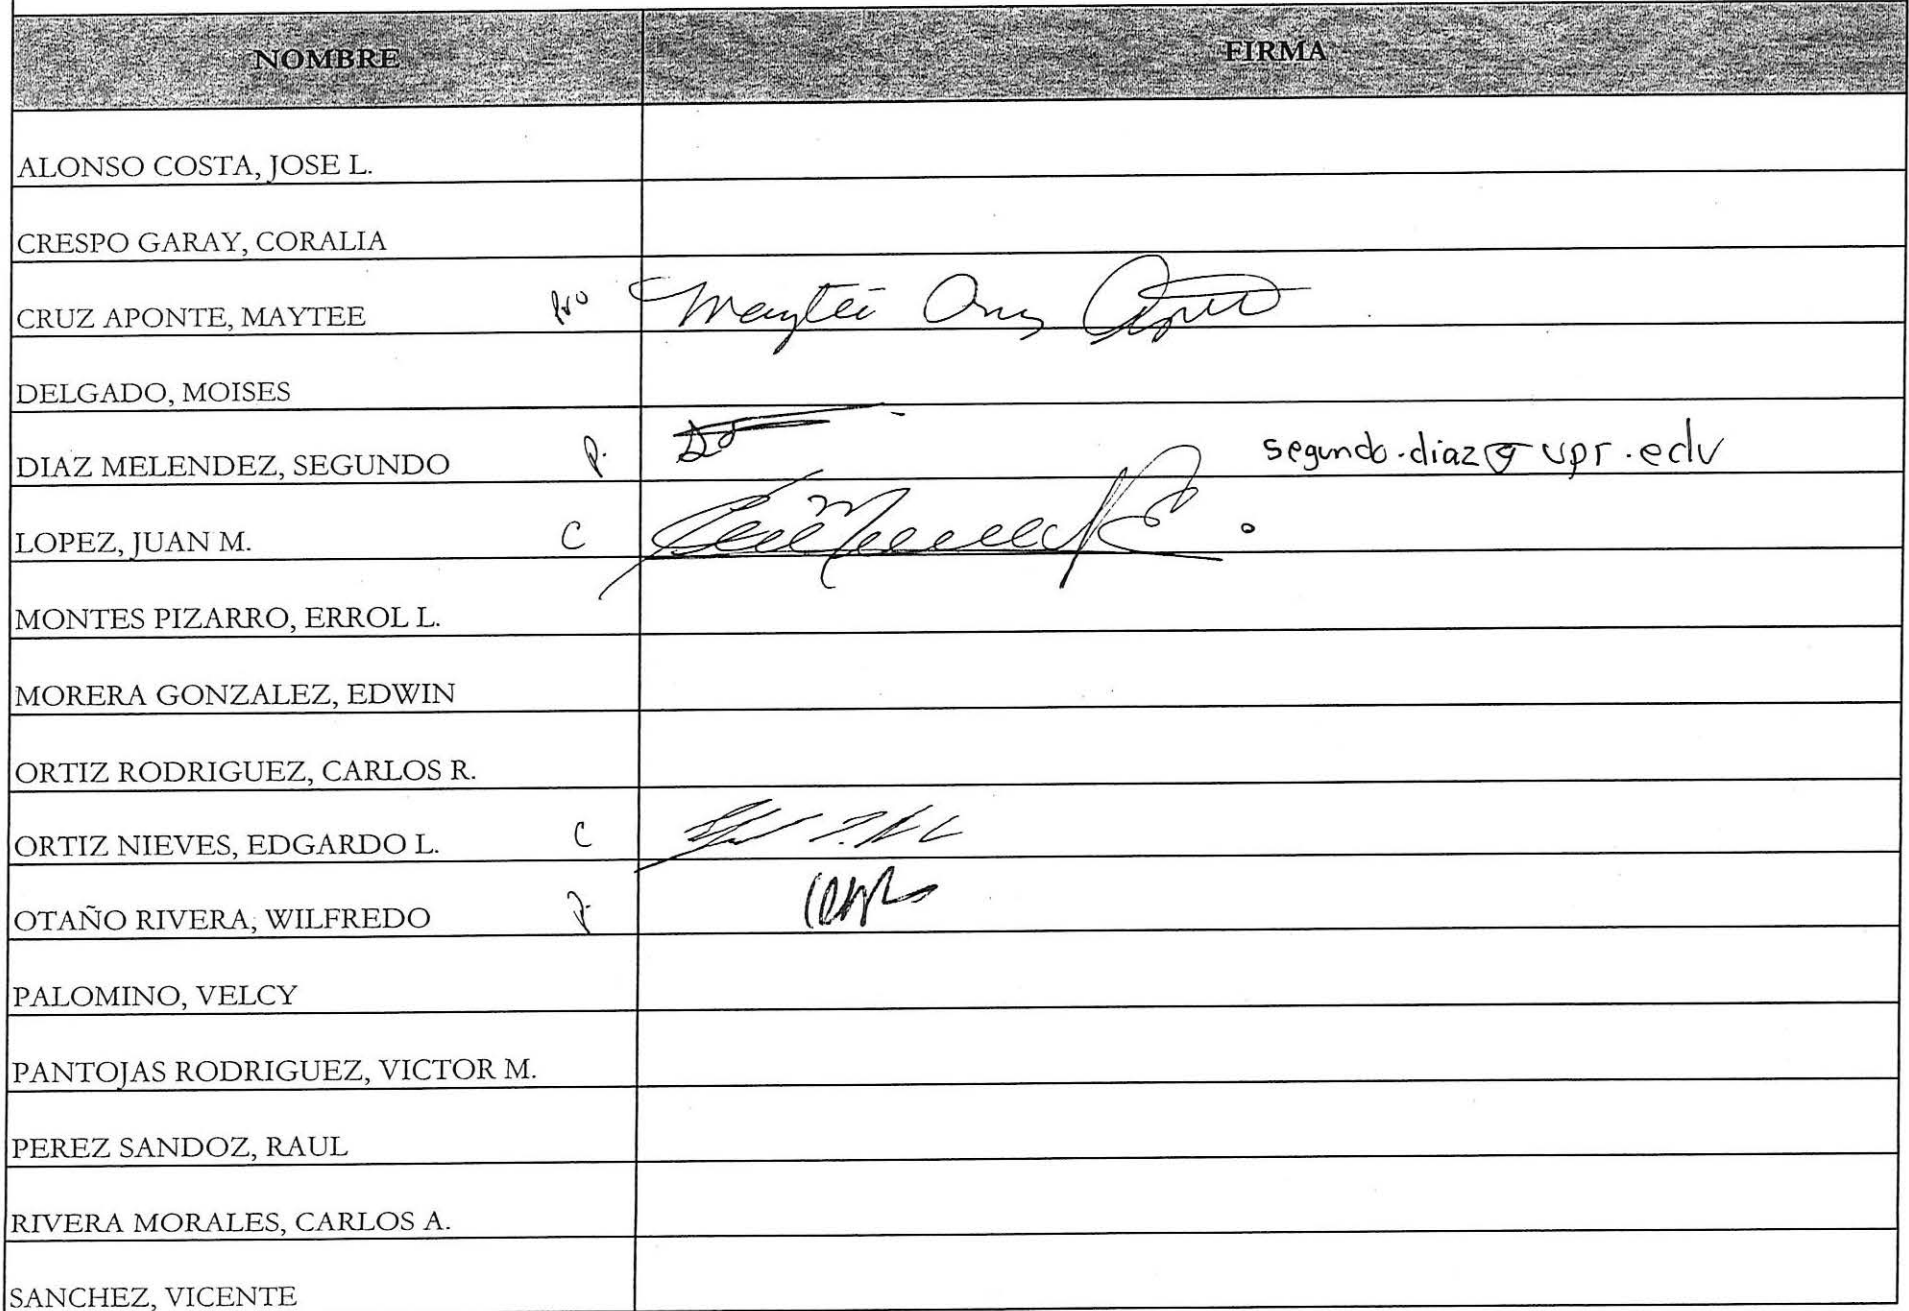 NOMBRE FIRMA
ALONSO COSTA, JOSE L.
CRESPO GARAY, CORALIA
CRUZ APONTE, MAYTEE Pro Mayteé Cruz Aponte
DELGADO, MOISES
DIAZ MELENDEZ, SEGUNDO P. segundo.diaz@upr.edu
LOPEZ, JUAN M. C
MONTES PIZARRO, ERROL L.
MORERA GONZALEZ, EDWIN
ORTIZ RODRIGUEZ, CARLOS R.
ORTIZ NIEVES, EDGARDO L. C
OTAÑO RIVERA, WILFREDO P.
PALOMINO, VELCY
PANTOJAS RODRIGUEZ, VICTOR M.
PEREZ SANDOZ, RAUL
RIVERA MORALES, CARLOS A.
SANCHEZ, VICENTE